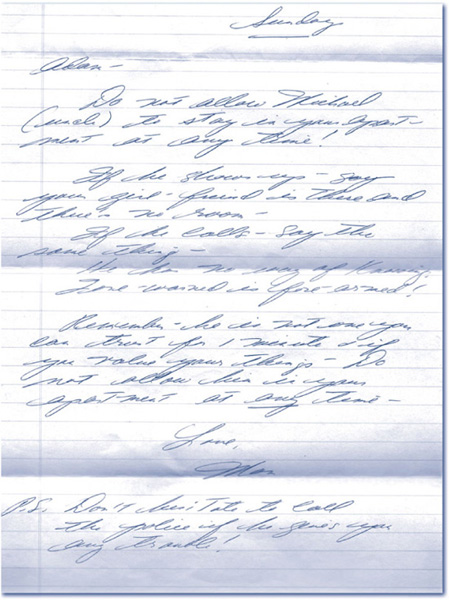 Sunday
Adam-
Do not allow Michael
(uncle) to stay in your apart-
ment at any time!
If he shows up - say
your girl-friend is there and
there's no room-
If he calls - say the
same thing-
He has no way of knowing.
Fore-warned is fore-armed!
Remember - he is not one you
can trust for 1 minute & if
you value your things - Do
not allow him in your
apartment at any time-
Love,
Mom
P.S. Don't hesitate to call
the police if he gives you
any trouble!